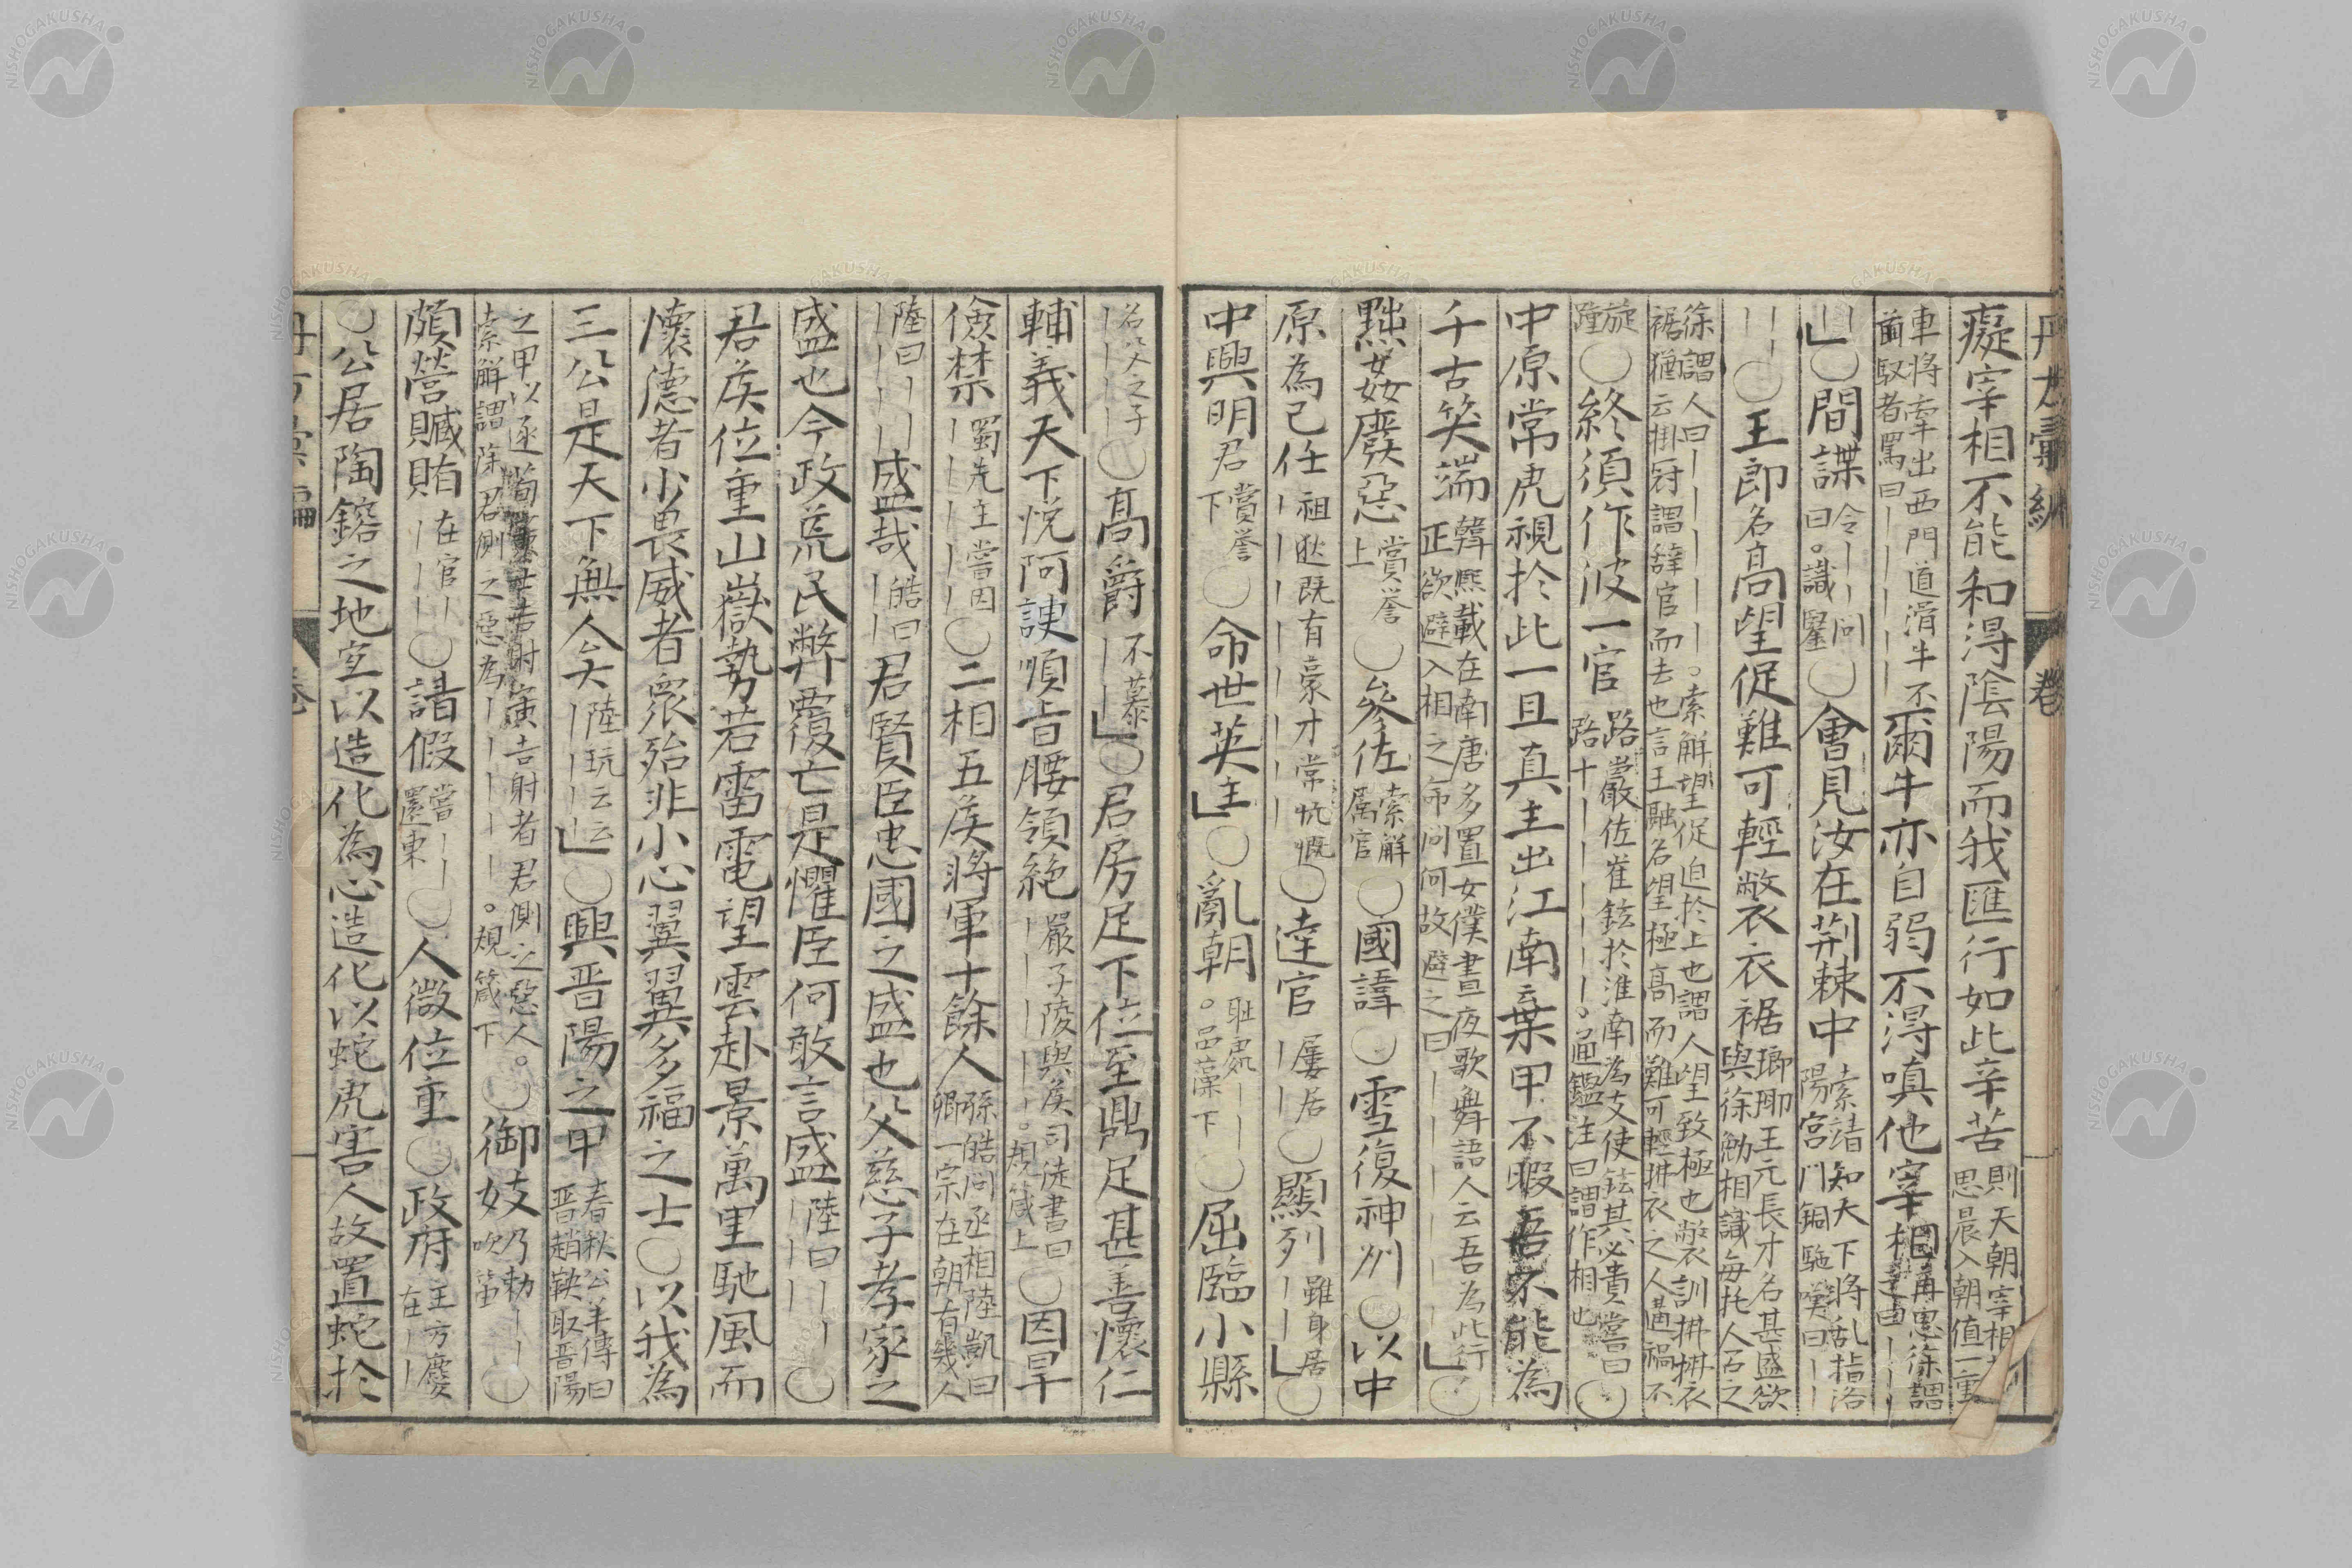 癡宰相不能和得陰陽而我匯行如此辛苦
則天朝宰相
思晨入朝值一重
車將牽出西門道滑牛不
前馭者罵曰｜｜｜｜｜
爾牛亦自弱不得嗔他宰相
｜｜
｜｜」〇間諜
令｜｜問
曰。識鑿
〇會見汝在荆棘中
索靖知天下將乱指洛
陽宮門銅駞嘆曰｜｜
｜｜｜〇王郎名高望促難可輕弊衣裾
瑯琊王元長才名甚盛欲
與徐勉相識每托人召之
徐謂人曰｜｜｜｜｜｜｜。索解望促迫於上也謂人望致極也弊訓拂拂衣
裾猶云掛冠謂辭官而去也言王融名望極高而難可輕拂衣之人遘禍不
旋
踵
〇終須作波一官
路巖佐崔鉉於淮南為支使鉉其必貴嘗曰
路十｜｜｜｜｜。通鑑注曰謂作相也
〇
中原常虎視於此一旦真主出江南棄甲不暇吾不能為
千古笑端
韓熈載在南唐多置女僕晝夜歌舞語人云吾為此行
正欲避入相之命问何故避之曰｜｜｜｜｜｜」
〇
黜姦廢惡
賞誉
上
〇參佐
索解
属官
〇國諱〇雪復神州〇以中
原為己任
祖逖既有豪才常忼慨
｜｜｜｜｜｜
〇達官
屢居
｜｜
〇顯列
雖身居
｜｜」
〇
中興明君
賞誉
下
〇命世英主」〇亂朝
耻処｜｜
。品藻下
〇屈臨小縣
名父之子
｜｜｜｜
〇高爵
不慕
｜｜」
〇君房足下位至鼎足甚善懷仁
輔義天下悅阿諛順旨腰領絶
嚴子陵與矦司徒書曰
｜｜｜｜｜。規箴上
〇因旱
儉禁
蜀先主嘗因
｜｜｜｜｜
〇二相五矦將軍十餘人
孫皓问丞相陸凱曰
卿一宗在朝有幾人
陸曰｜｜｜
｜｜｜｜
盛哉
皓曰
｜｜
君賢臣忠國之盛也父慈子孝家之
盛也今政荒民弊覆亡是懼臣何敢言盛
陸曰｜｜
｜｜
〇
君矦位重山嶽勢若雷電望雲赴景萬里馳風而
懷德者少畏威者衆殆非小心翼翼多福之士〇以我為
三公是天下無人矣
陸玩云云
｜｜｜｜」
〇興晋陽之甲
春秋公羊傳曰
晋趙鞅取晋陽
之甲以逐荀寅士吉射寅吉射者君側之惡人。
索解謂除君側之惡為｜｜｜｜｜。規箴下
〇御妓
乃勅｜｜
吹笛
〇
頗營贓賄
在官｜
｜｜｜
〇請假
嘗｜｜
還東
〇人微位重〇政府
王方慶
在｜｜
〇公居陶鎔之地宜以造化為心造化以蛇虎害人故置蛇於